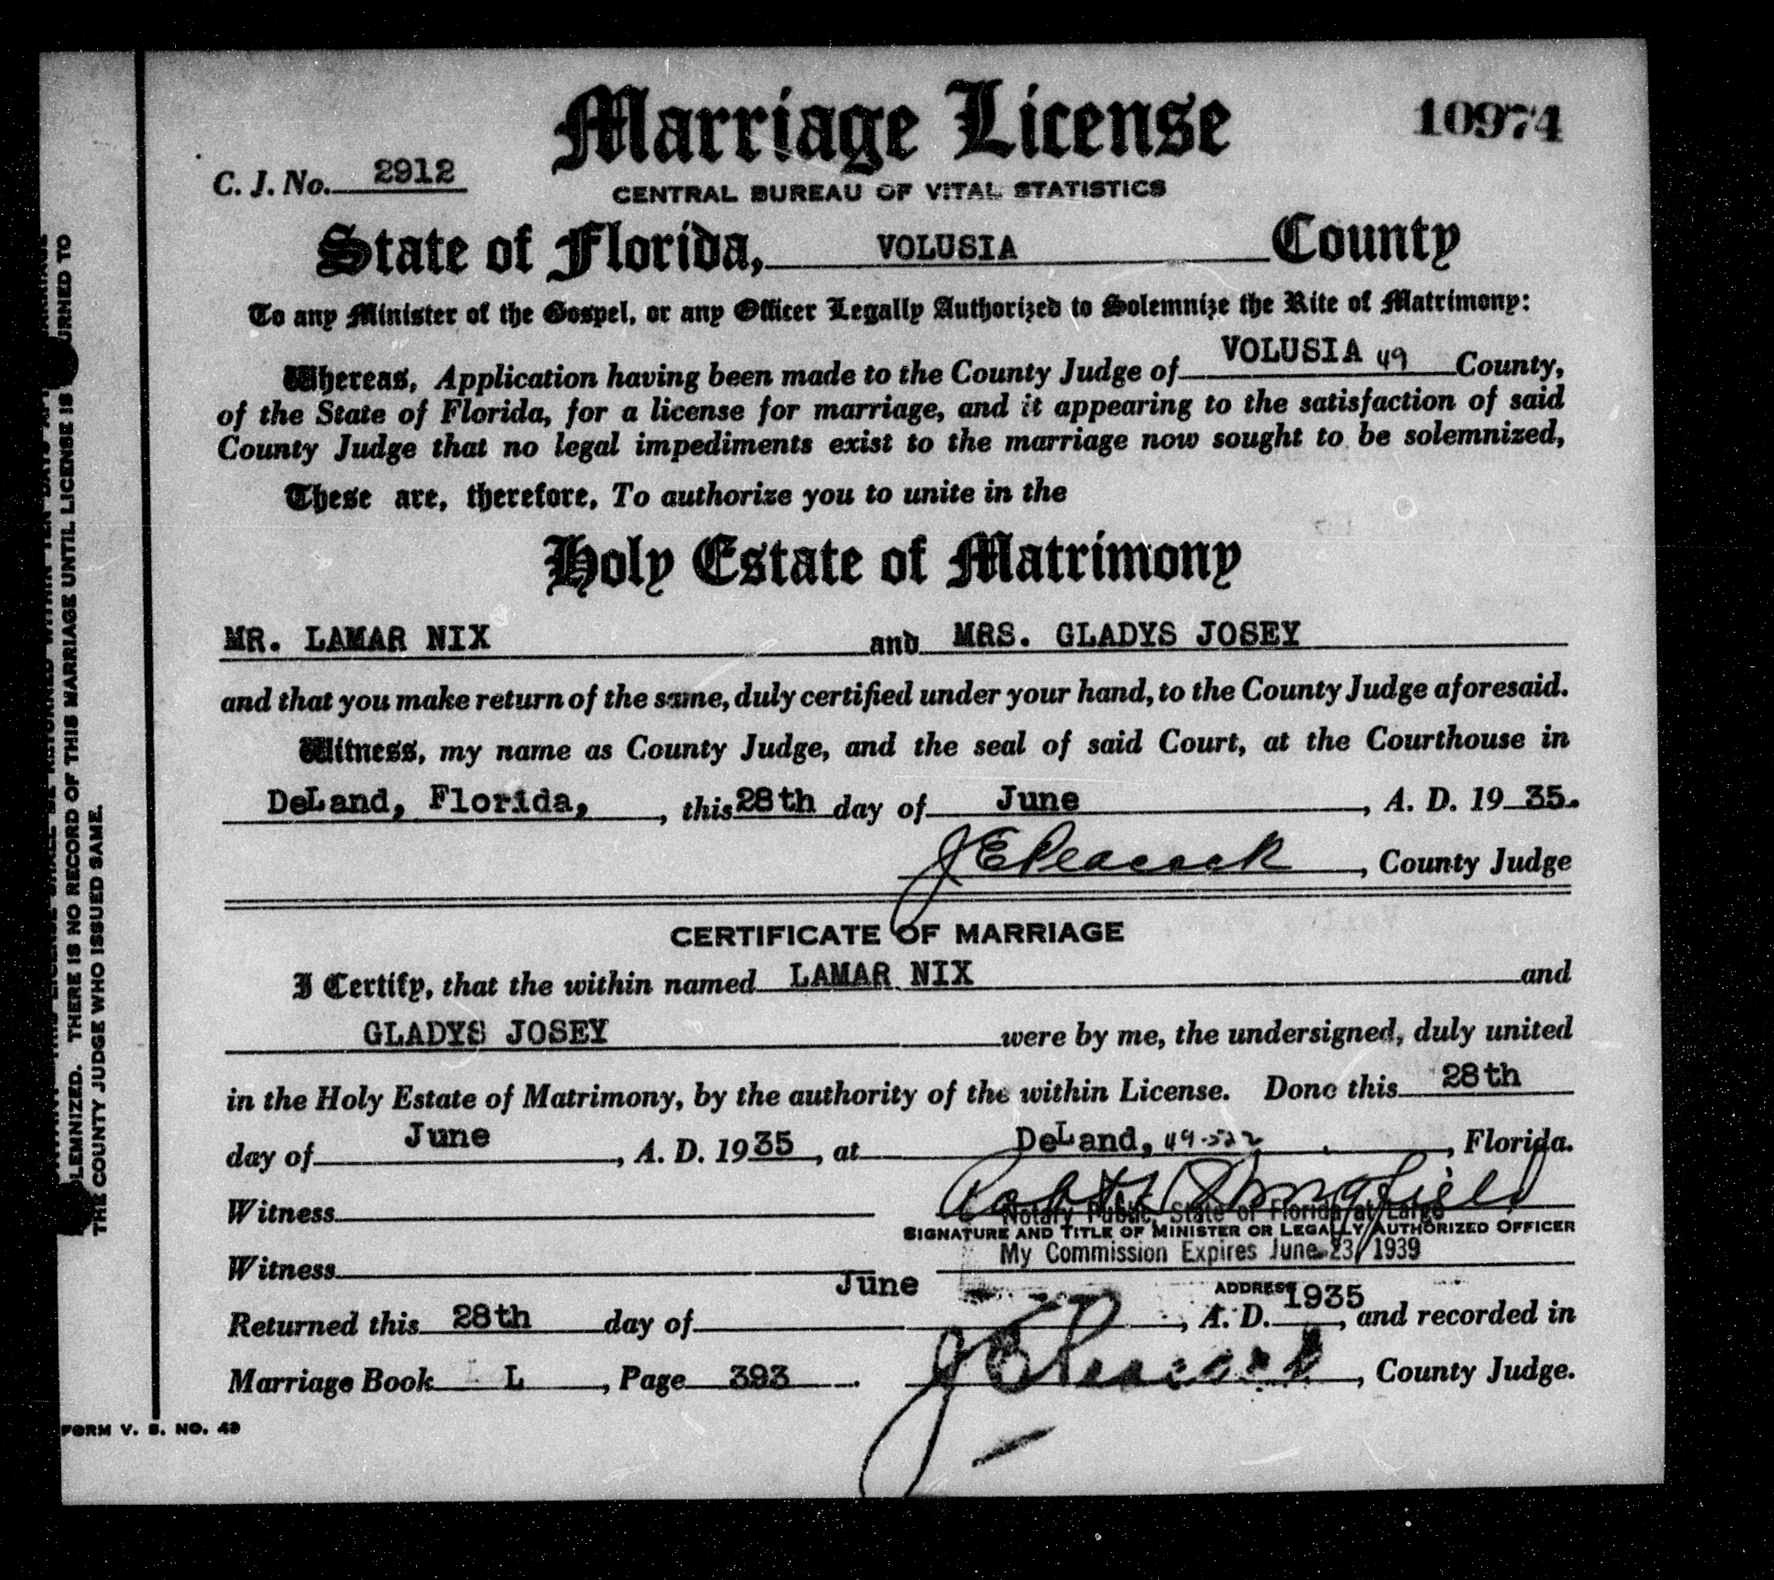 Marriage License
10974
C. J. No. 2912
CENTRAL BUREAU OF VITAL STATISTICS
State of Florida, VOLUSIA County
To any Minister of the Gospel, or any Officer Legally Authorized to Solemnize the Rite of Matrimony:
Whereas, Application having been made to the County Judge of VOLUSIA 49 County,
of the State of Florida, for a license for marriage, and it appearing to the satisfaction of said
County Judge that no legal impediments exist to the marriage now sought to be solemnized,
These are, therefore, To authorize you to unite in the
Holy Estate of Matrimony
MR. LAMAR NIX and MRS. GLADYS JOSEY
and that you make return of the same, duly certified under your hand, to the County Judge aforesaid.
Witness, my name as County Judge, and the seal of said Court, at the Courthouse in
DeLand, Florida, , this 28th day of June , A. D. 19 35.
J E Peacock , County Judge
CERTIFICATE OF MARRIAGE
I Certify, that the within named LAMAR NIX and
GLADYS JOSEY were by me, the undersigned, duly united
in the Holy Estate of Matrimony, by the authority of the within License. Done this 28th
day of June , A. D. 19 35 , at DeLand, 49-522 , Florida.
Witness
Notary Public, State of Florida at Large
SIGNATURE AND TITLE OF MINISTER OR LEGALLY AUTHORIZED OFFICER
My Commission Expires June 23, 1939
Witness
ADDRESS
Returned this 28th day of June , A. D. 1935 , and recorded in
Marriage Book L , Page 393 . J E Peacock , County Judge.
FORM V. S. NO. 43
URNED TO
LEMNIZED. THERE IS NO RECORD OF THIS MARRIAGE UNTIL LICENSE IS
THE COUNTY JUDGE WHO ISSUED SAME.